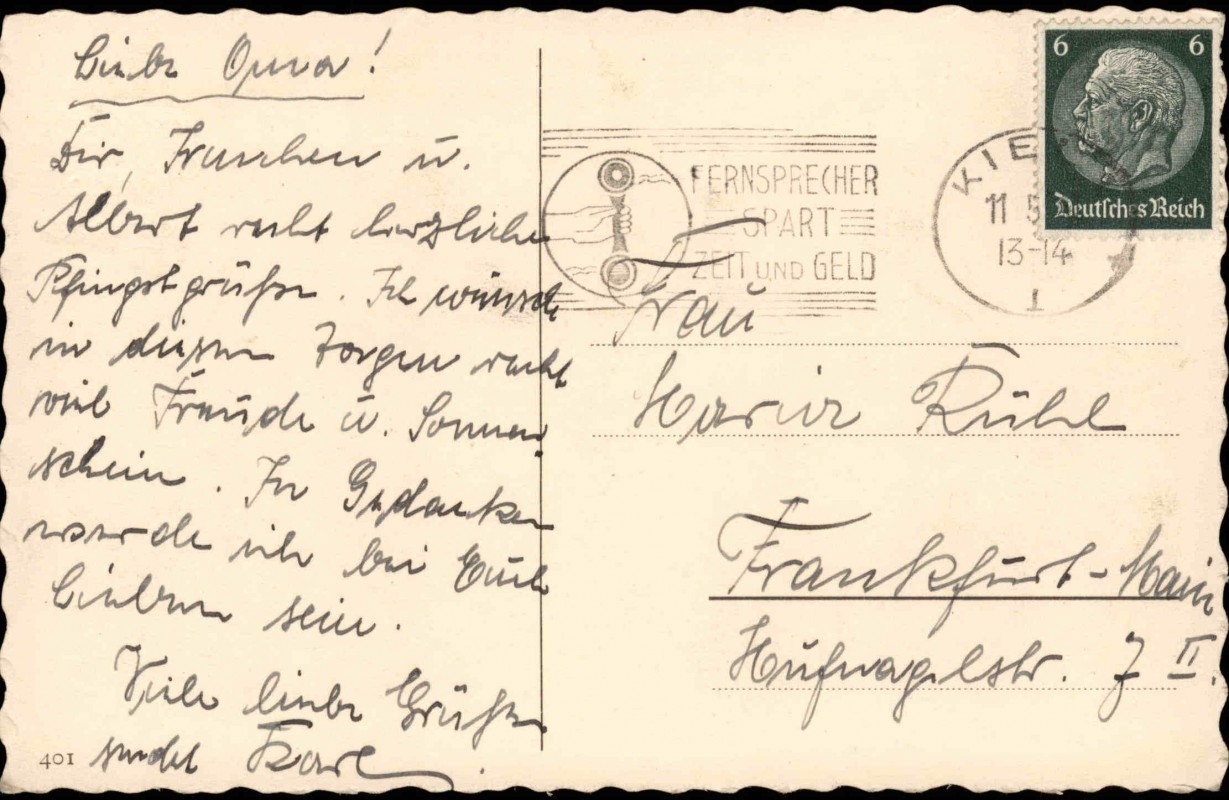 Liebe Oma!
Dir, Frauchen u.
Albert recht herzliche
Pfingstgrüße. Ich wünsche
in diesen Tagen recht
viel Freude u. Sonnen
schein. In Gedanken
werde ich bei Euch
Lieben sein.
Viele liebe Grüße
sendet Karl.
401
6 6
Deutsches Reich
FERNSPRECHER
SPART
ZEIT UND GELD
KIE
11 5
13-14
1
Frau
Maria Rühl
Frankfurt-Main
Hufnagelstr. 7 II.